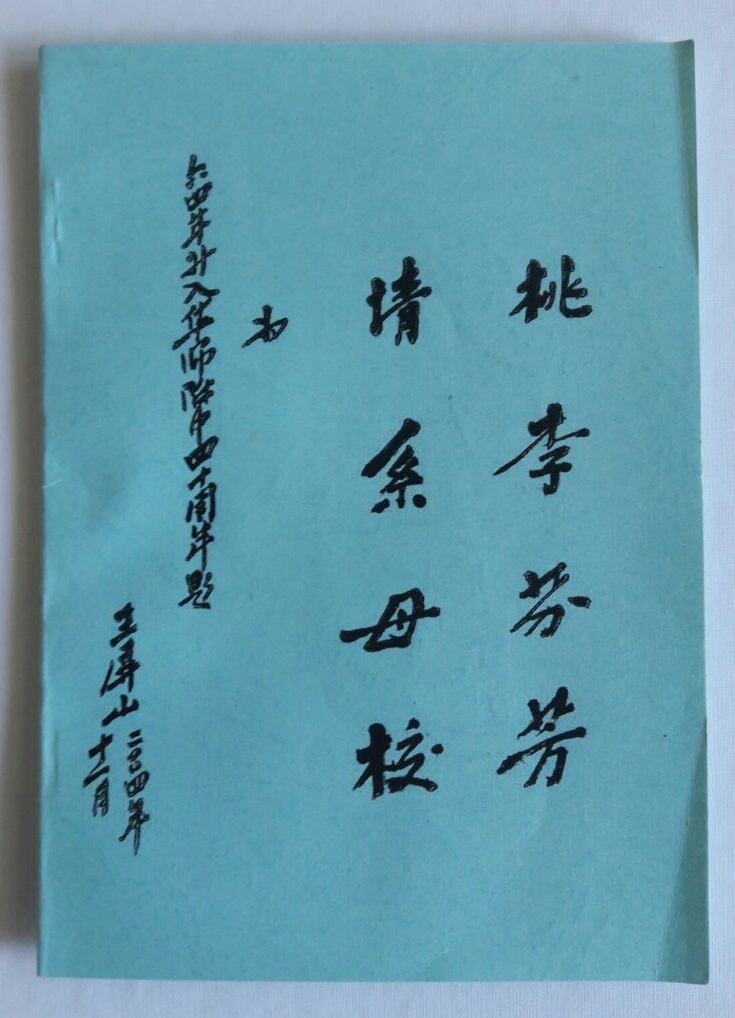 桃李芬芳
情系母校
为
六四年升入华师附中四十周年题
王屏山
二〇〇四年
十一月